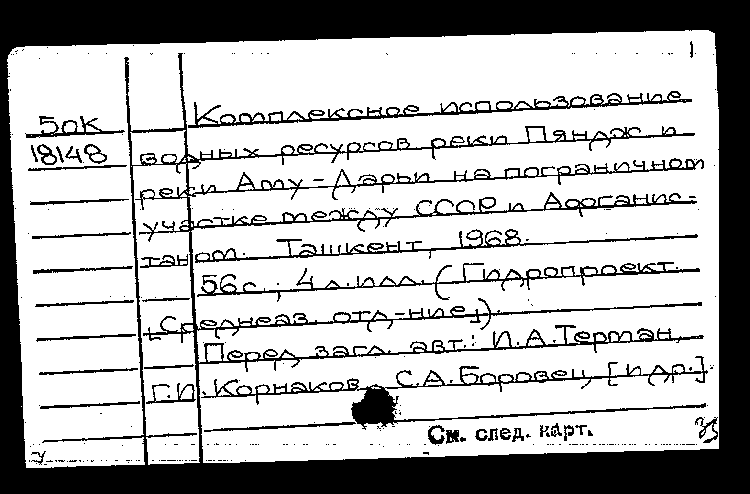 1
5ок Комплексное использование
18148 водных ресурсов реки Пяндж и
реки Аму-Дарьи на пограничном
участке между СССР и Афганис-
таном. Ташкент, 1968.
56с.; 4 л.илл. (Гидропроект.
[Среднеаз. отд-ние]).
Перед загл. авт.: И.А.Герман,
Г.И.Корнаков, С.А.Боровец, [и др.].
См. след. карт.